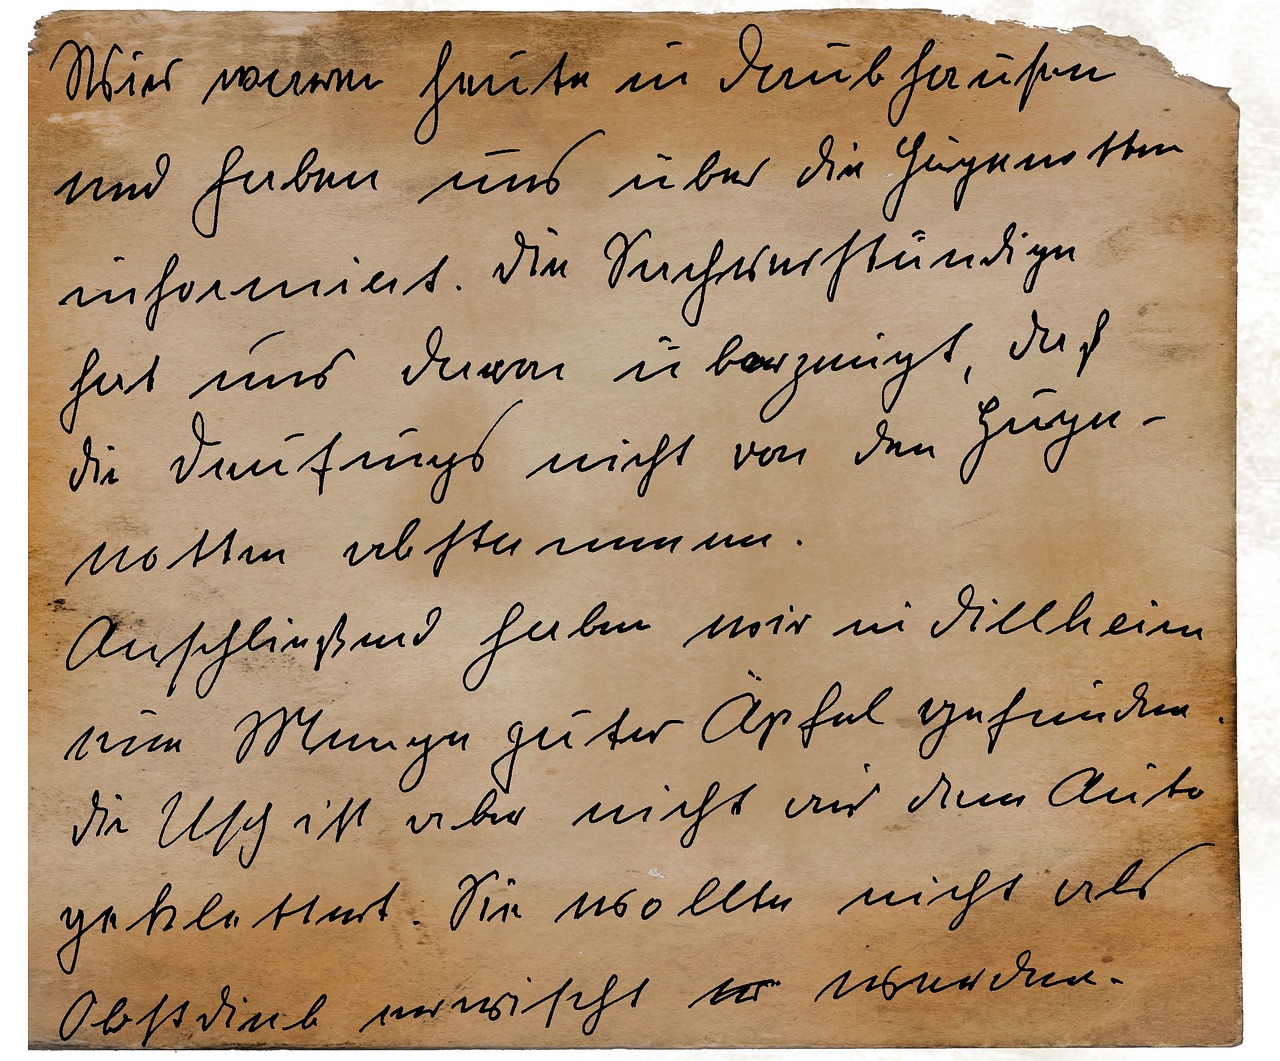 Wir waren heute in Daubhausen
und haben uns über die Hugenotten
informiert. Die Sachverständige
hat uns davon überzeugt, daß
die Daufungs nicht von den Huge-
notten abstammen.
Anschließend haben wir in Dillheim
eine Menge guter Äpfel gefunden.
Die Usch ist aber nicht aus dem Auto
geklettert. Sie wollte nicht als
Obstdieb erwischt werden.